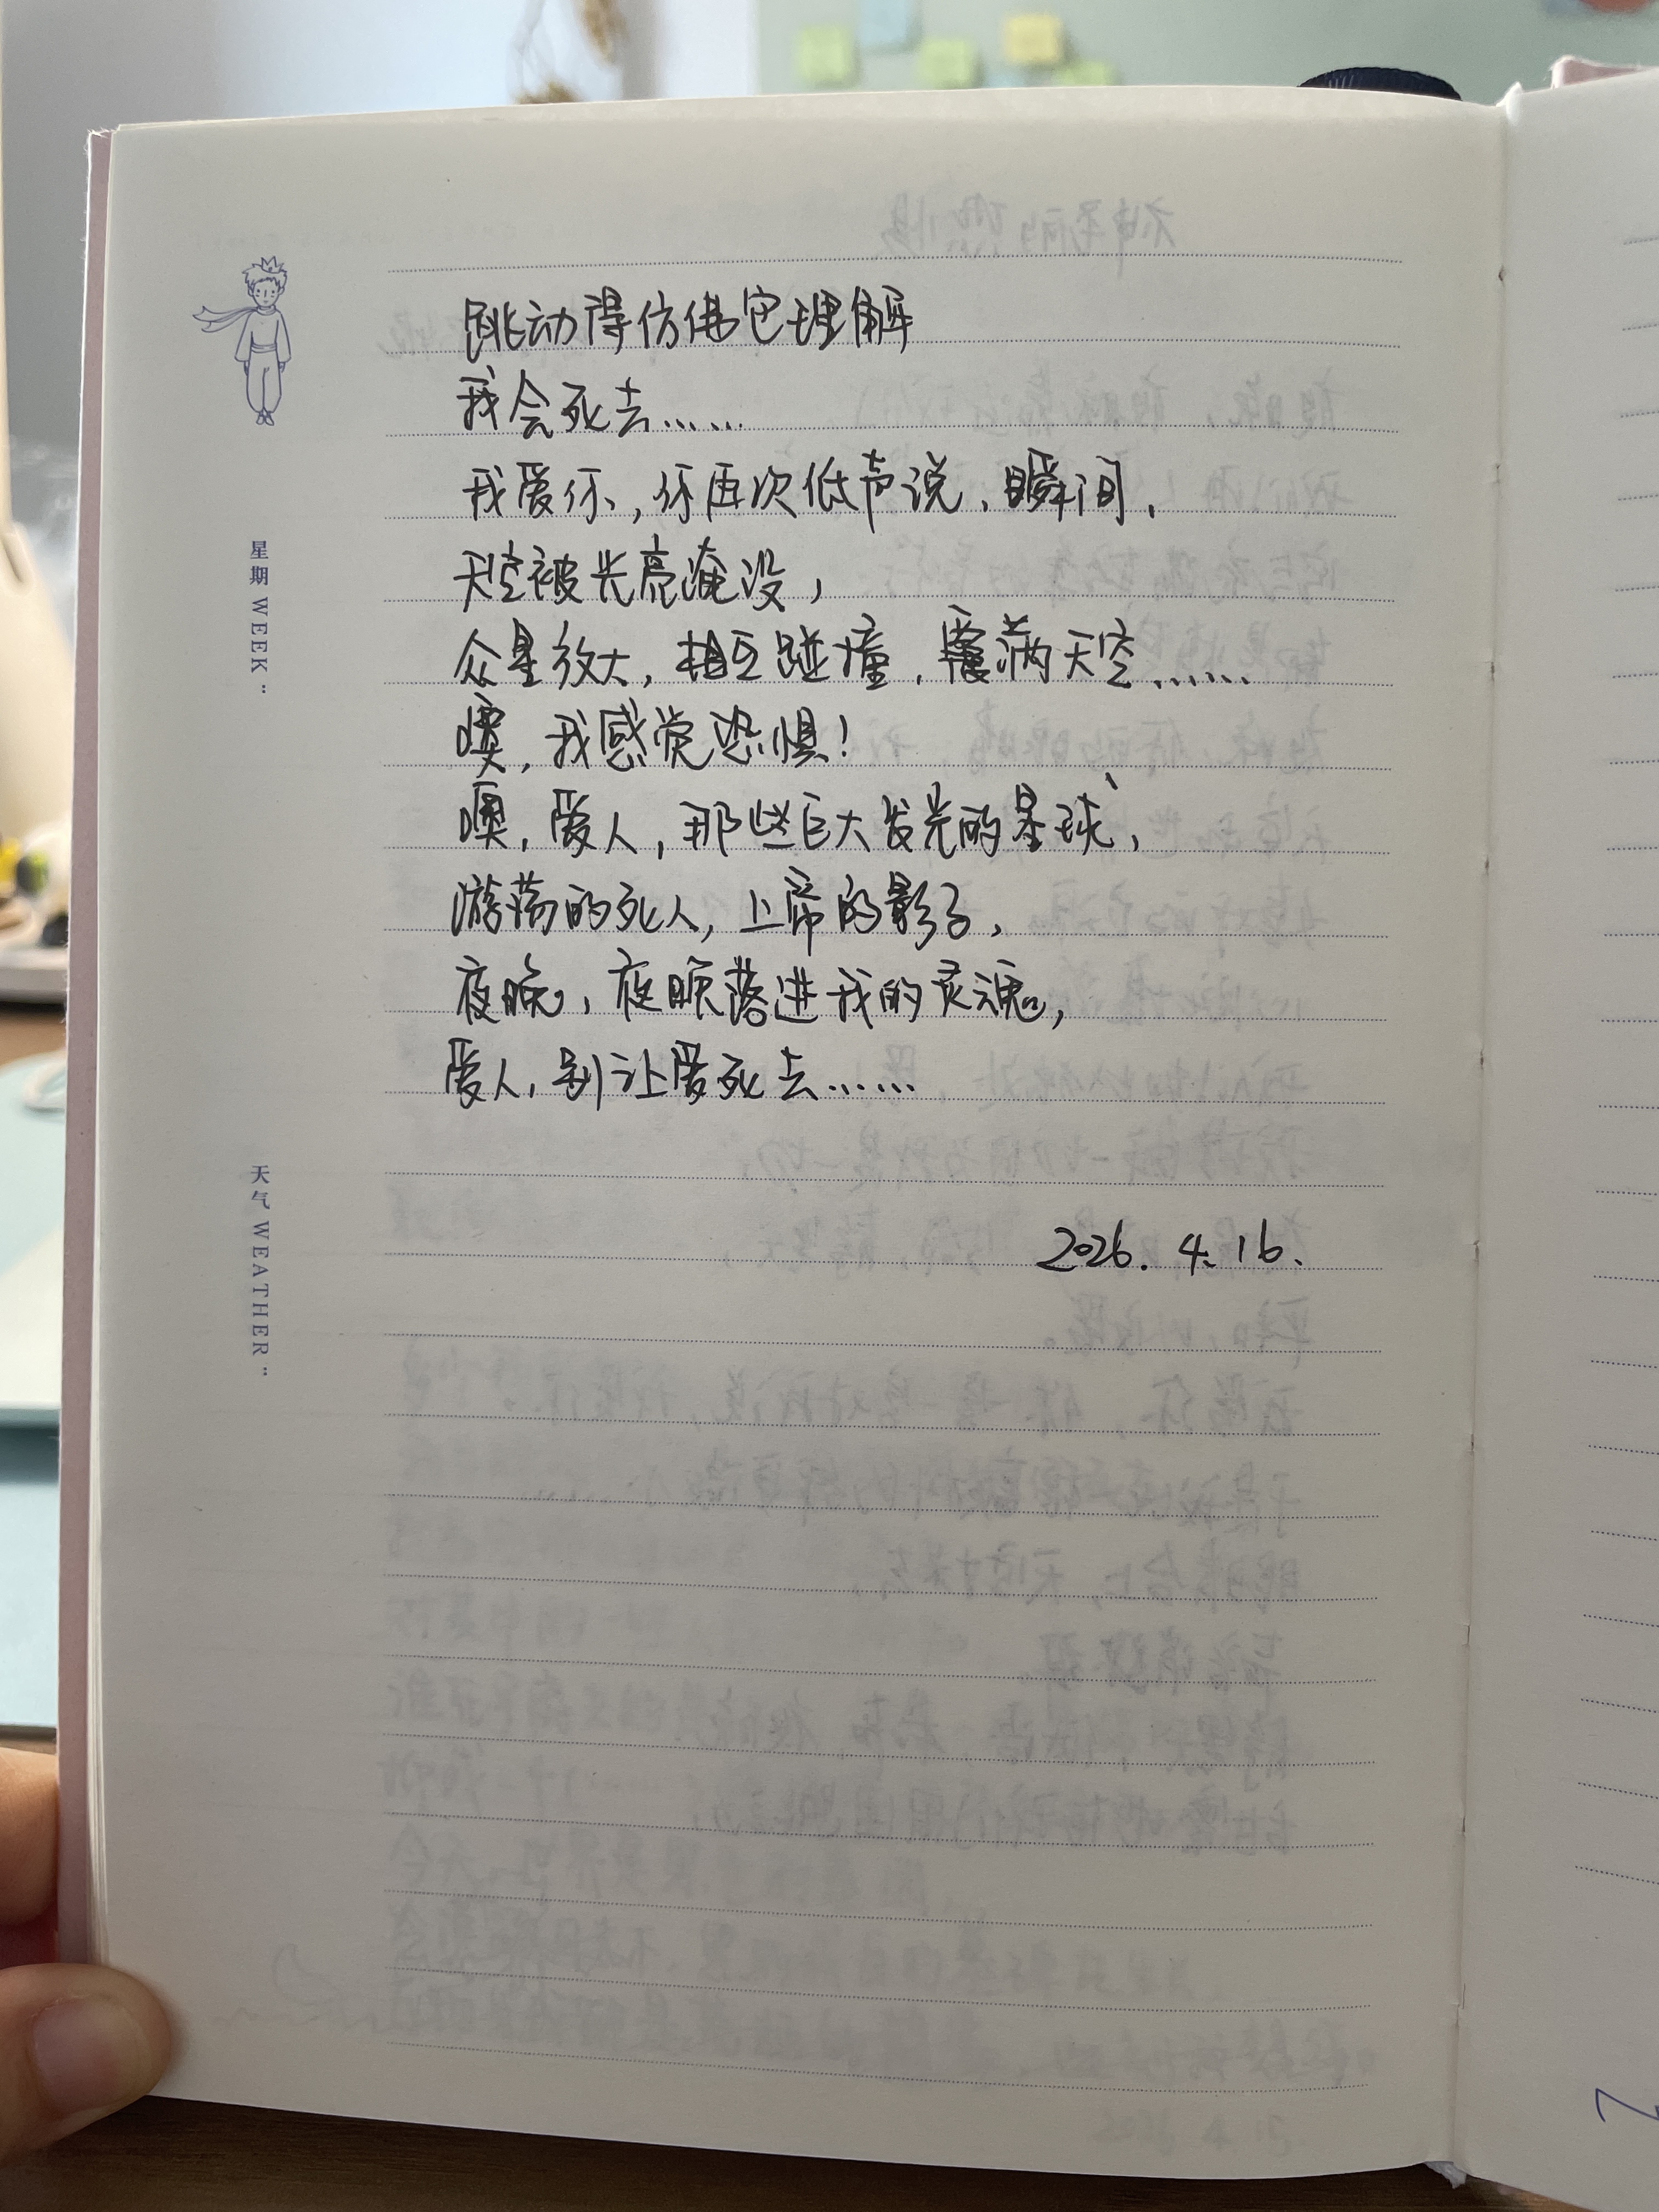 跳动得仿佛它理解
我会死去……
我爱你，你再次低声说，瞬间，
天空被光亮淹没，
众星放大，相互碰撞，覆满天空……
噢，我感觉恐惧！
噢，爱人，那些巨大发光的星球，
游荡的死人，上帝的影子，
夜晚，夜晚落进我的灵魂，
爱人，别让爱死去……
2026.4.16.
星期 WEEK：
天气 WEATHER：